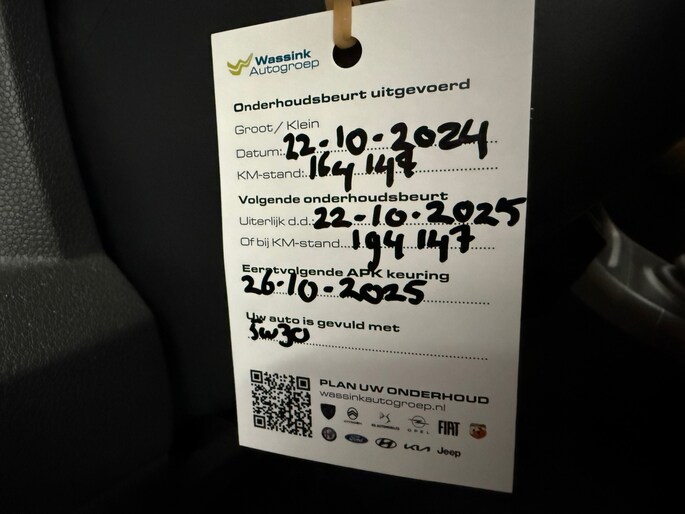 Wassink
Autogroep
Onderhoudsbeurt uitgevoerd
Groot / Klein
Datum: 22-10-2024
KM-stand: 164 147
Volgende onderhoudsbeurt
Uiterlijk d.d.: 22-10-2025
Of bij KM-stand 194 147
Eerstvolgende APK keuring
26-10-2025
Uw auto is gevuld met
5w30
PLAN UW ONDERHOUD
wassinkautogroep.nl
OPEL FIAT
KIA Jeep